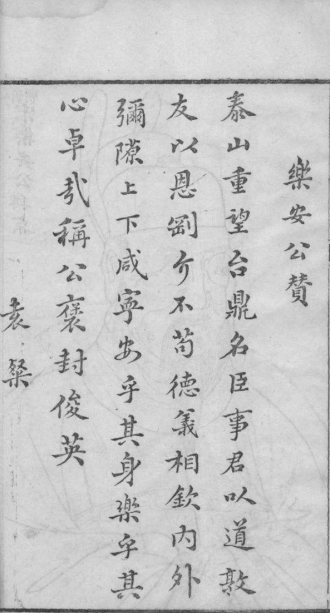 樂安公贊
泰山重望台鼎名臣事君以道敦
友以恩剛介不苟德義相欽內外
彌隙上下咸寧安乎其身樂乎其
心卓哉稱公褒封俊英
袁粲